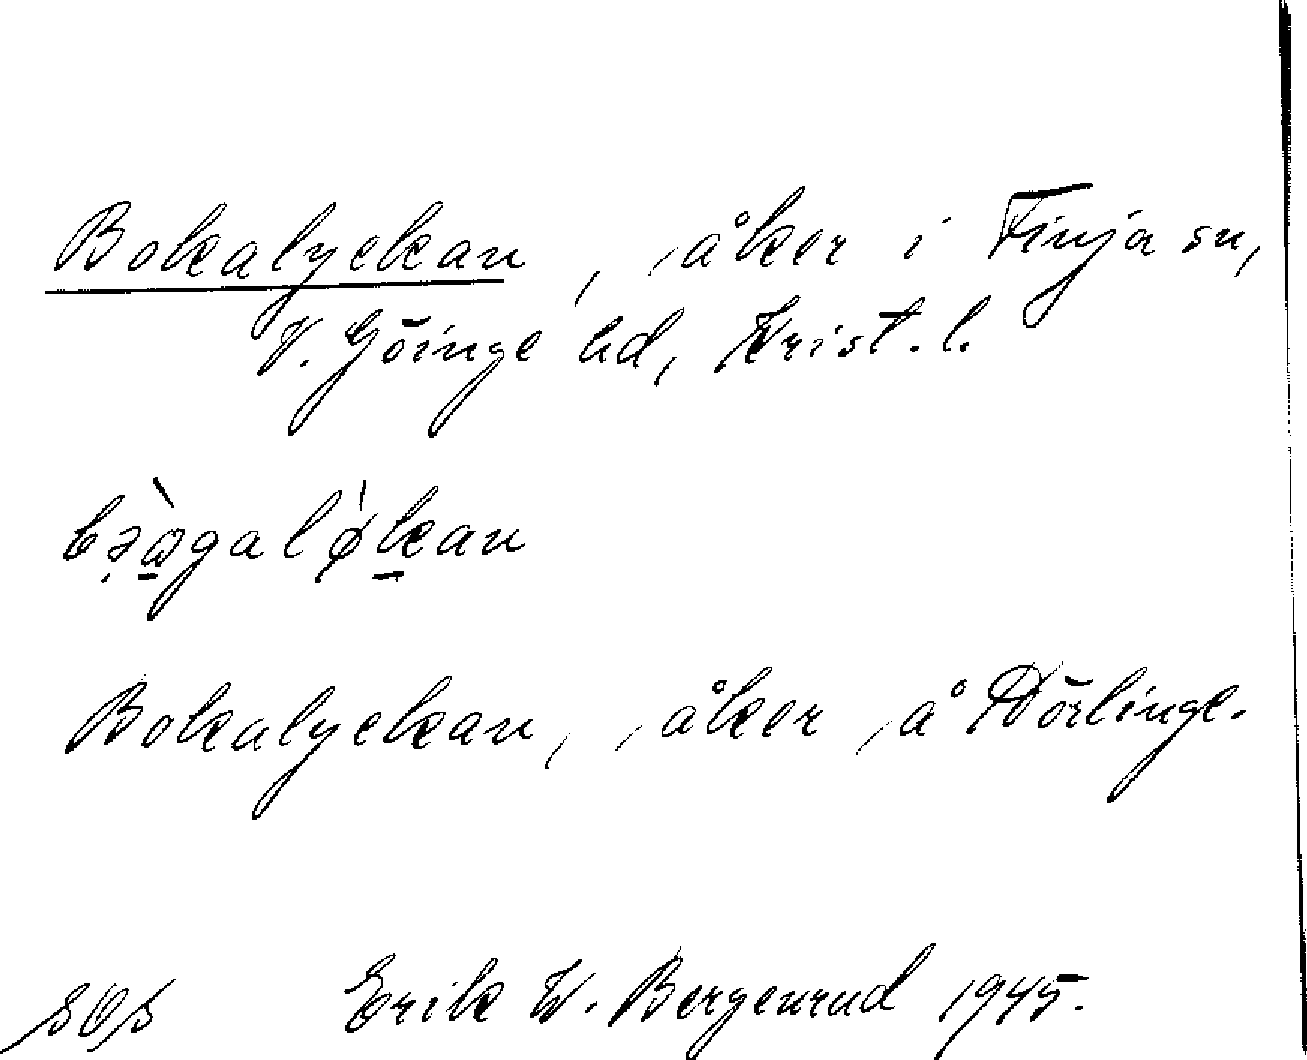 Bokalyckan, åker i Finja sn,
V. Göinge hd, Krist. l.
Bokalyckan, åker å Dörlinge.
SOS Erik W. Bergenrud 1945.